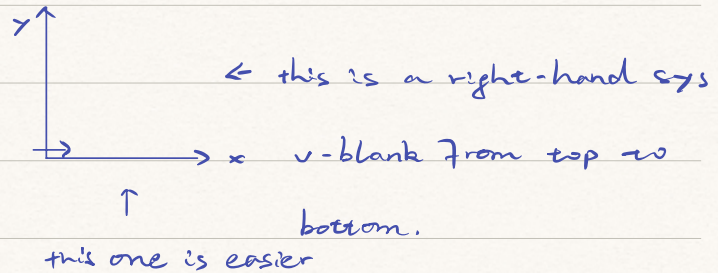 y
← this is a right-hand sys
x v-blank from top to
↑ bottom.
this one is easier